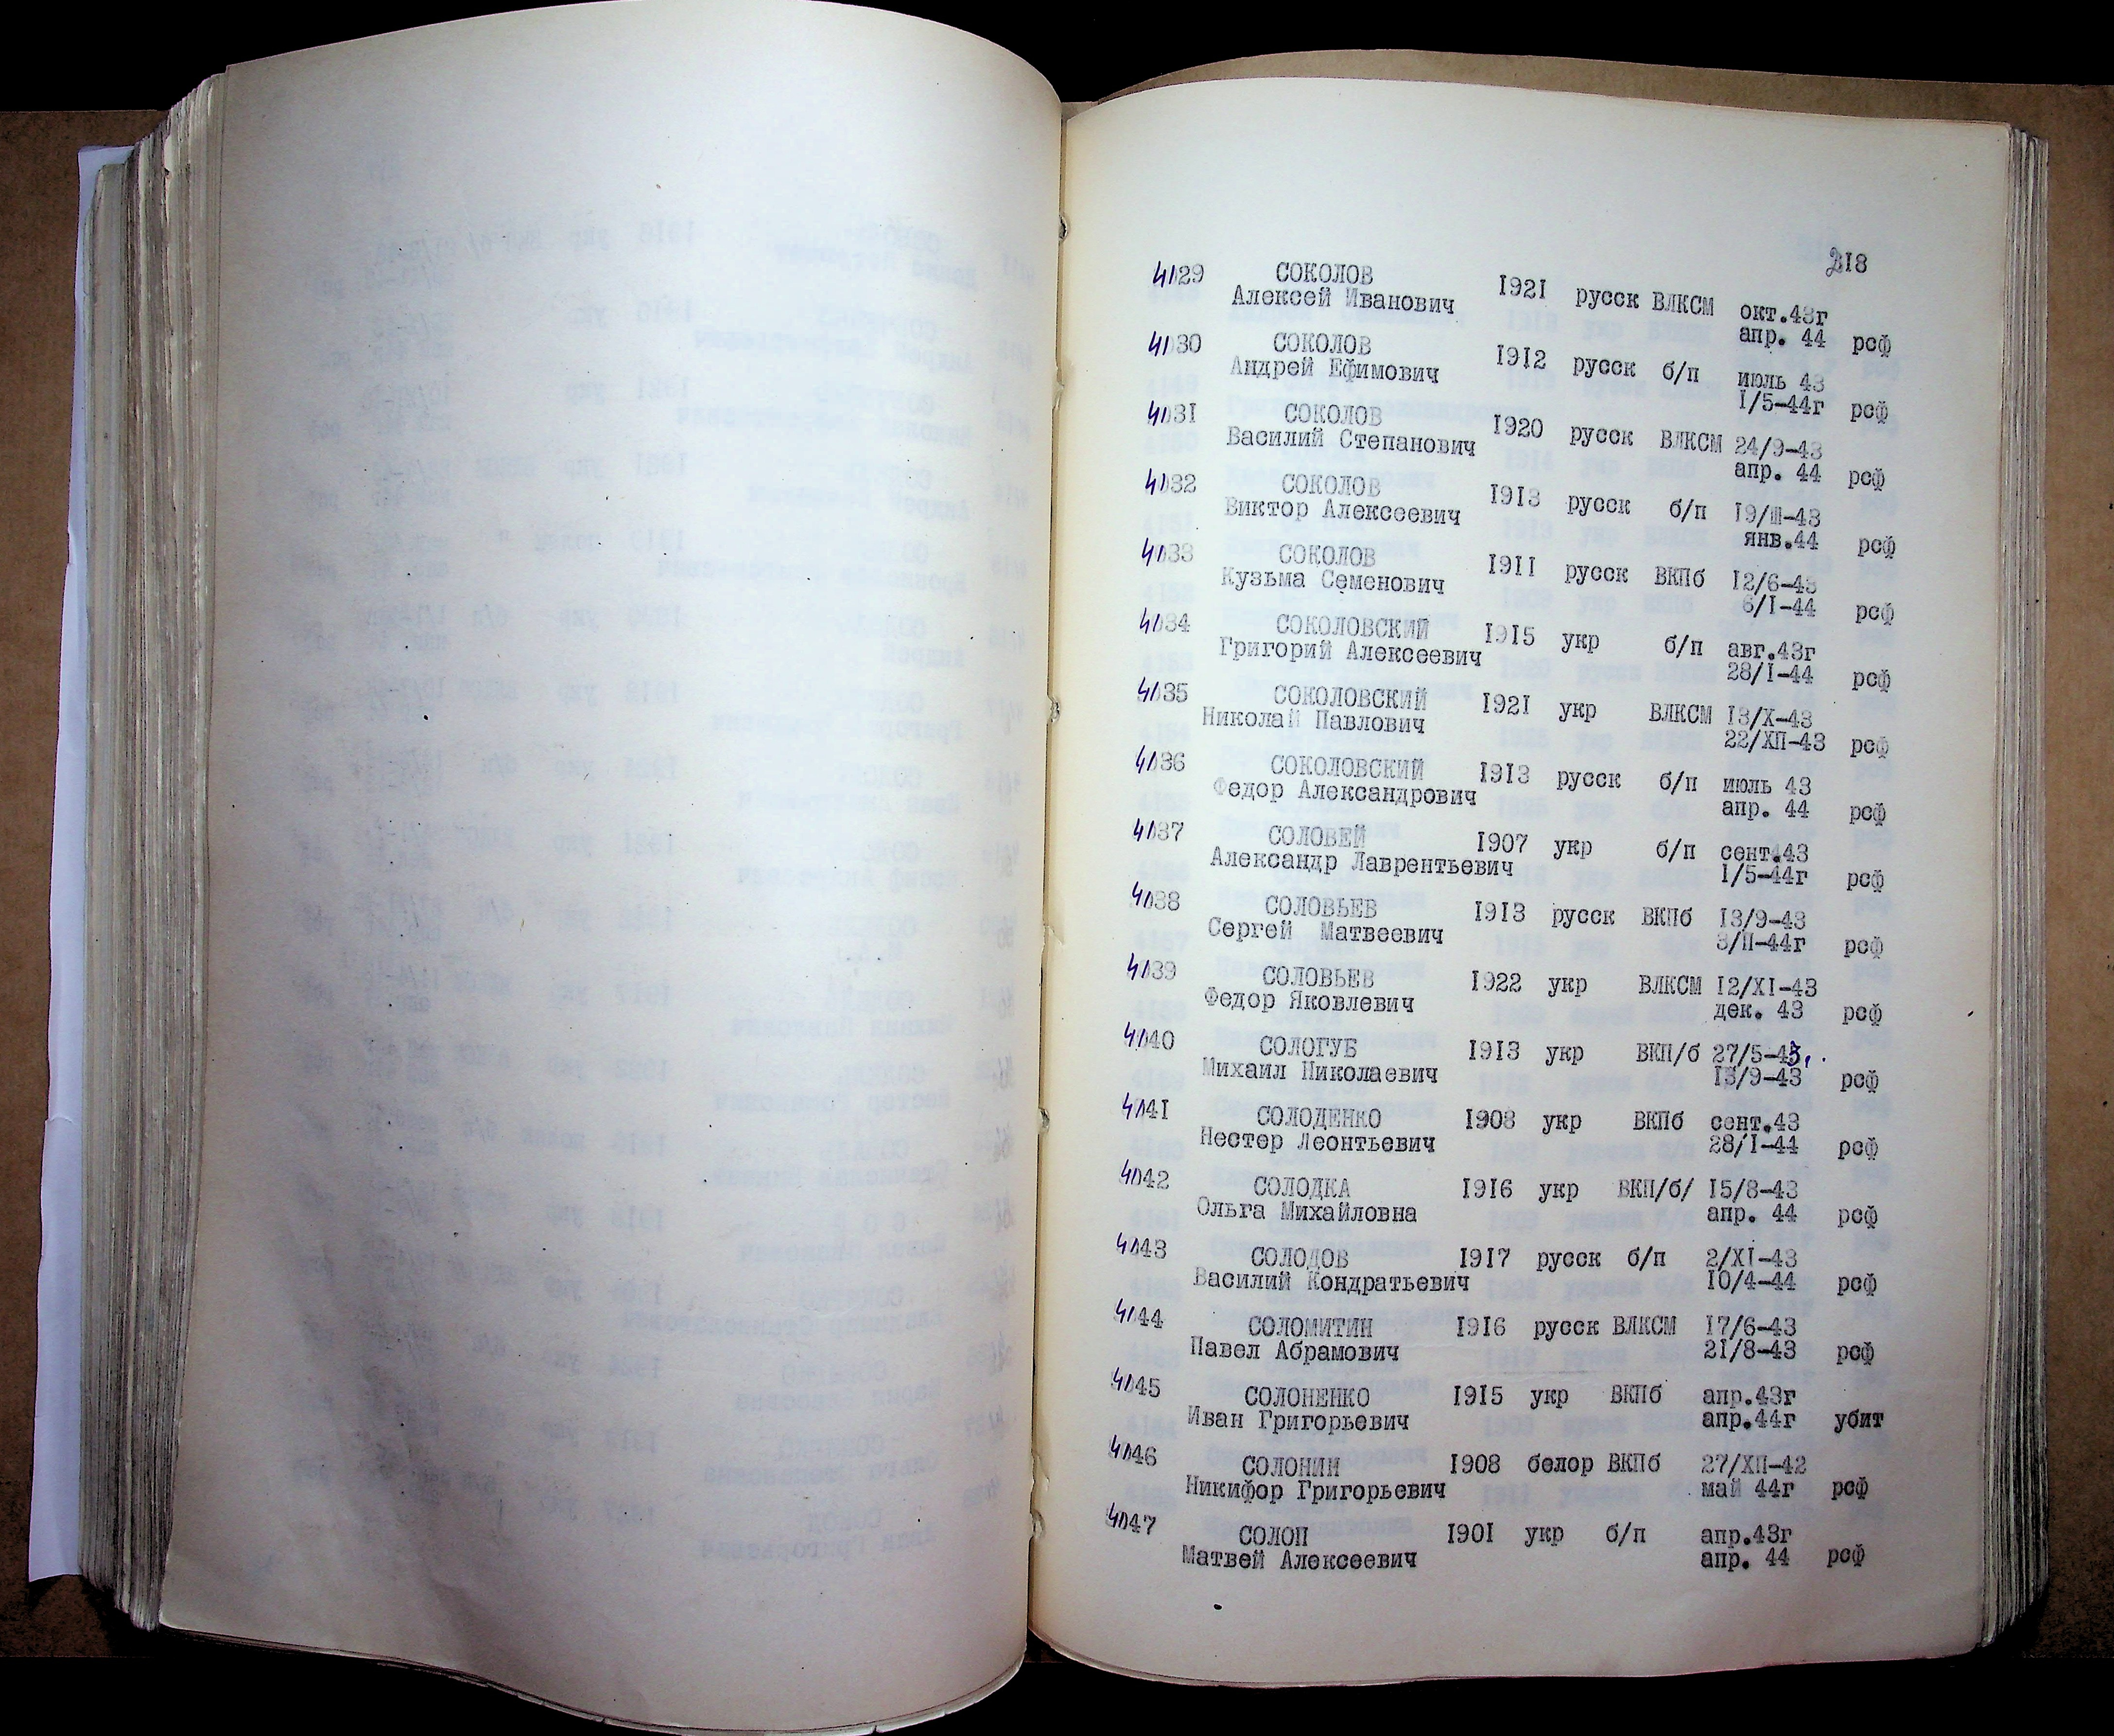 218
4129 СОКОЛОВ 1921 русск ВЛКСМ окт.43г
Алексей Иванович апр. 44 рсф
4130 СОКОЛОВ 1912 русск б/п июль 43
Андрей Ефимович 1/5-44г рсф
4131 СОКОЛОВ 1920 русск ВЛКСМ 24/9-43
Василий Степанович апр. 44 рсф
4132 СОКОЛОВ 1913 русск б/п 19/Ш-43
Виктор Алексеевич янв.44 рсф
4133 СОКОЛОВ 1911 русск ВКПб 12/6-43
Кузьма Семенович 6/1-44 рсф
4134 СОКОЛОВСКИЙ 1915 укр б/п авг.43г
Григорий Алексеевич 28/1-44 рсф
4135 СОКОЛОВСКИЙ 1921 укр ВЛКСМ 13/Х-43
Николай Павлович 22/ХП-43 рсф
4136 СОКОЛОВСКИЙ 1913 русск б/п июль 43
Федор Александрович апр. 44 рсф
4137 СОЛОВЕЙ 1907 укр б/п сент.43
Александр Лаврентьевич 1/5-44г рсф
4138 СОЛОВЬЕВ 1913 русск ВКПб 13/9-43
Сергей Матвеевич 3/П-44г рсф
4139 СОЛОВЬЕВ 1922 укр ВЛКСМ 12/XI-43
Федор Яковлевич дек. 43 рсф
4140 СОЛОГУБ 1913 укр ВКП/б 27/5-43
Михаил Николаевич 13/9-43 рсф
4141 СОЛОДЕНКО 1908 укр ВКПб сент.43
Нестер Леонтьевич 28/1-44 рсф
4142 СОЛОДКА 1916 укр ВКП/б/ 15/8-43
Ольга Михайловна апр. 44 рсф
4143 СОЛОДОВ 1917 русск б/п 2/XI-43
Василий Кондратьевич 10/4-44 рсф
4144 СОЛОМИТИН 1916 русск ВЛКСМ 17/6-43
Павел Абрамович 21/8-43 рсф
4145 СОЛОНЕНКО 1915 укр ВКПб апр.43г
Иван Григорьевич апр.44г убит
4146 СОЛОНИН 1908 белор ВКПб 27/ХП-42
Никифор Григорьевич май 44г рсф
4147 СОЛОП 1901 укр б/п апр.43г
Матвей Алексеевич апр. 44 рсф